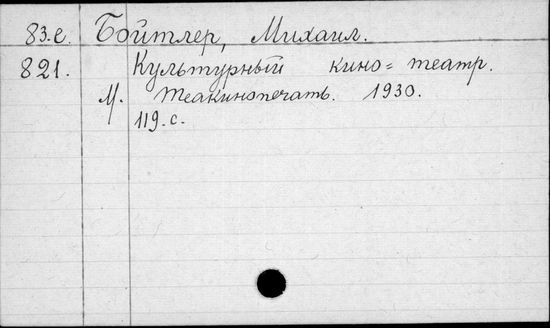 83.е. Бойтлер, Михаил.
821. Культурный кино=театр.
М. Теакинопечать. 1930.
119.с.